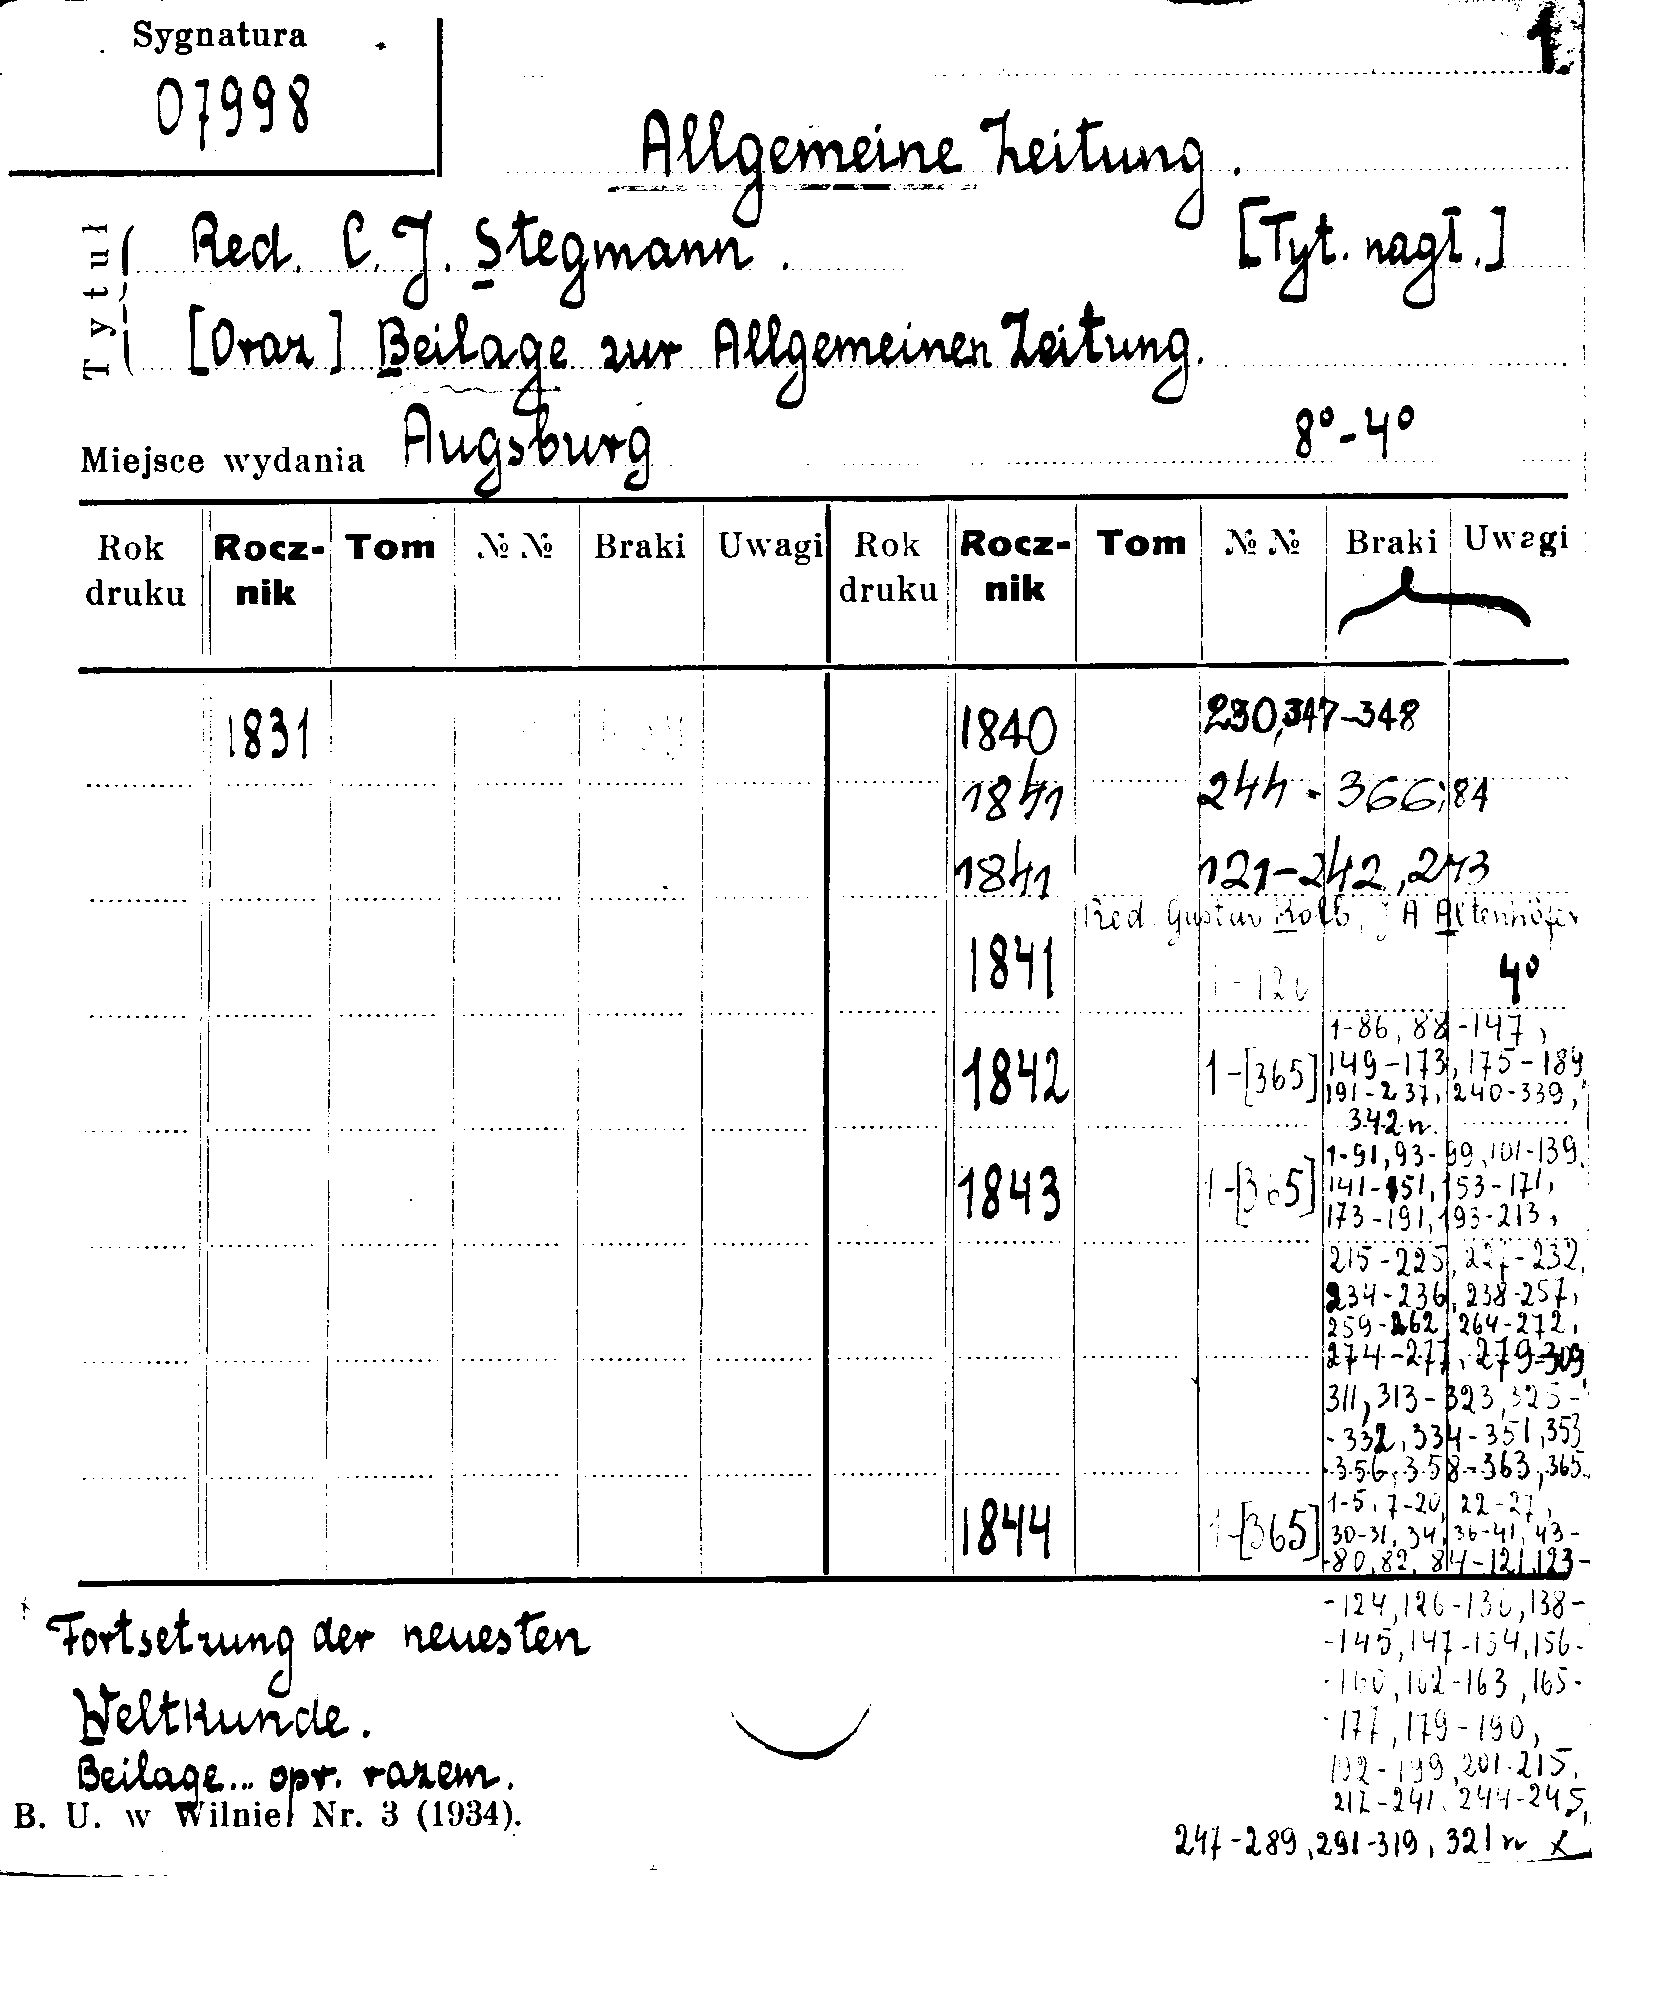 Sygnatura
07998
1.
Allgemeine Zeitung.
Tytuł
Red. C. J. Stegmann. [Tyt. nagł.]
[Oraz] Beilage zur Allgemeinen Zeitung.
Miejsce wydania Augsburg 8º-4º
Rok druku Rocz-nik Tom № № Braki Uwagi Rok druku Rocz-nik Tom № № Braki Uwagi
1831 1840 230,347-348
1841 244-366;84
1841 121-242,273
Red. Gustav Kolb, J A Altenhöfer
1841 1-120 4º
1-86, 88-147,
1842 1-[365] 149-173, 175-189
191-237, 240-339,
342 n.
1-91, 93-99, 101-139,
1843 1-[365] 141-151, 153-171,
173-191, 193-213,
215-225, 227-232,
234-236, 238-257,
259-262, 264-272,
274-277, 279-309,
311, 313-323, 325-
-332, 334-351, 353
-356, 358-363, 365.
1-5, 7-20, 22-27,
1844 1-[365] 30-31, 34, 36-41, 43-
-80, 82, 84-121, 123-
-124, 126-136, 138-
-145, 147-154, 156-
-160, 162-163, 165-
-177, 179-190,
192-199, 201-215,
217-241, 244-245,
247-289, 291-319, 321 n x
Fortsetzung der neuesten
Weltkunde.
Beilage... opr. razem.
B. U. w Wilnie, Nr. 3 (1934).